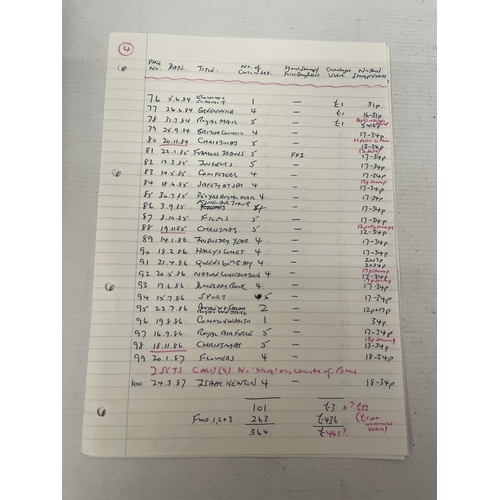 4
PHQ NO. DATE TITLE No. of Cards in set Catalogue Value
76 5.6.84 ECONOMIC SUMMIT 1 — £1 31p
77 26.6.84 GREENWICH 4 — £1 16-31p
78 31.7.84 ROYAL MAIL 5 — £1 5x16p
79 25.9.84 BRITISH COUNCIL 4 — 17-34p
80 20.11.84 CHRISTMAS 5 — 13-34p
81 22.1.85 FAMOUS TRAINS 5 FDI 17-34p
82 12.3.85 INSECTS 5 — 17-34p
83 14.5.85 COMPOSERS 4 — 17-34p
84 18.6.85 SAFETY AT SEA 4 — 17-34p
85 30.7.85 350 YRS ROYAL MAIL 4 — 17-34p
86 3.9.85 KING ARTHUR 4 — 17-34p
87 8.10.85 FILMS 5 — 17-34p
88 19.11.85 CHRISTMAS 5 — 12-34p
89 14.1.86 INDUSTRY YEAR 4 — 17-34p
90 18.2.86 HALLEYS COMET 4 — 17-34p
91 21.4.86 QUEENS 60th B'DAY 4 — 2x17p 2x34p
92 20.5.86 NATURE CONSERVATION 4 — 17-34p
93 17.6.86 DOMESDAY BOOK 4 — 17-34p
94 15.7.86 SPORT 5 — 17-34p
95 22.7.86 ROYAL WEDDING 2 — 12p+17p
96 19.8.86 COMMONWEALTH 1 — 34p
97 16.9.86 ROYAL AIR FORCE 5 — 17-34p
98 18.11.86 CHRISTMAS 5 — 13-34p
99 20.1.87 FLOWERS 4 — 18-34p
2 SETS
100 24.3.87 ISAAC NEWTON 4 — 18-34p
101 £3
Fwd 1, 2+3 263 £436
364 £461?